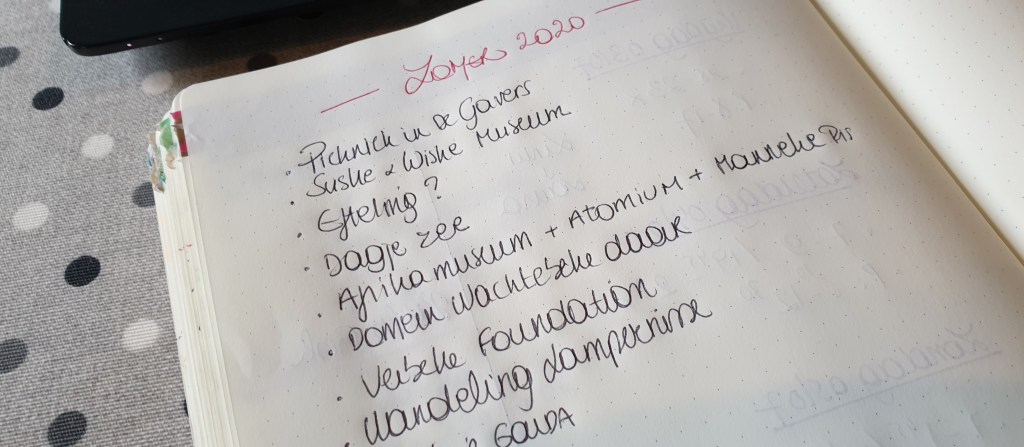 Zomer 2020
Picknick in de Gavers
Suske & Wiske Museum
Efteling?
Dagje zee
Afrikamuseum + Atomium + Manneke Pis
Domein Wachtebeke daguit
Verbeke Foundation
Wandeling Lampernisse
GOUDA